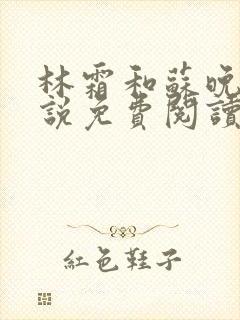 林霜和蘇晚
說免費閱讀
紅色鞋子